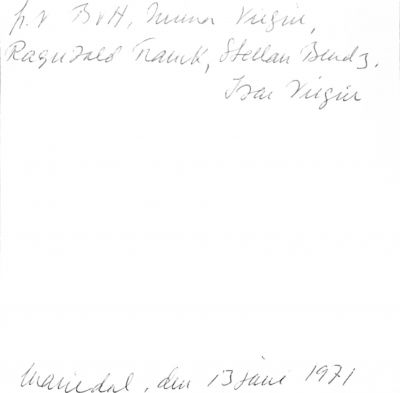 fr. v BvH, Numa Virgin,
Ragnvald Franck, Stellan Bendz,
Ivar Virgin
Mariedal, den 13 juni 1971